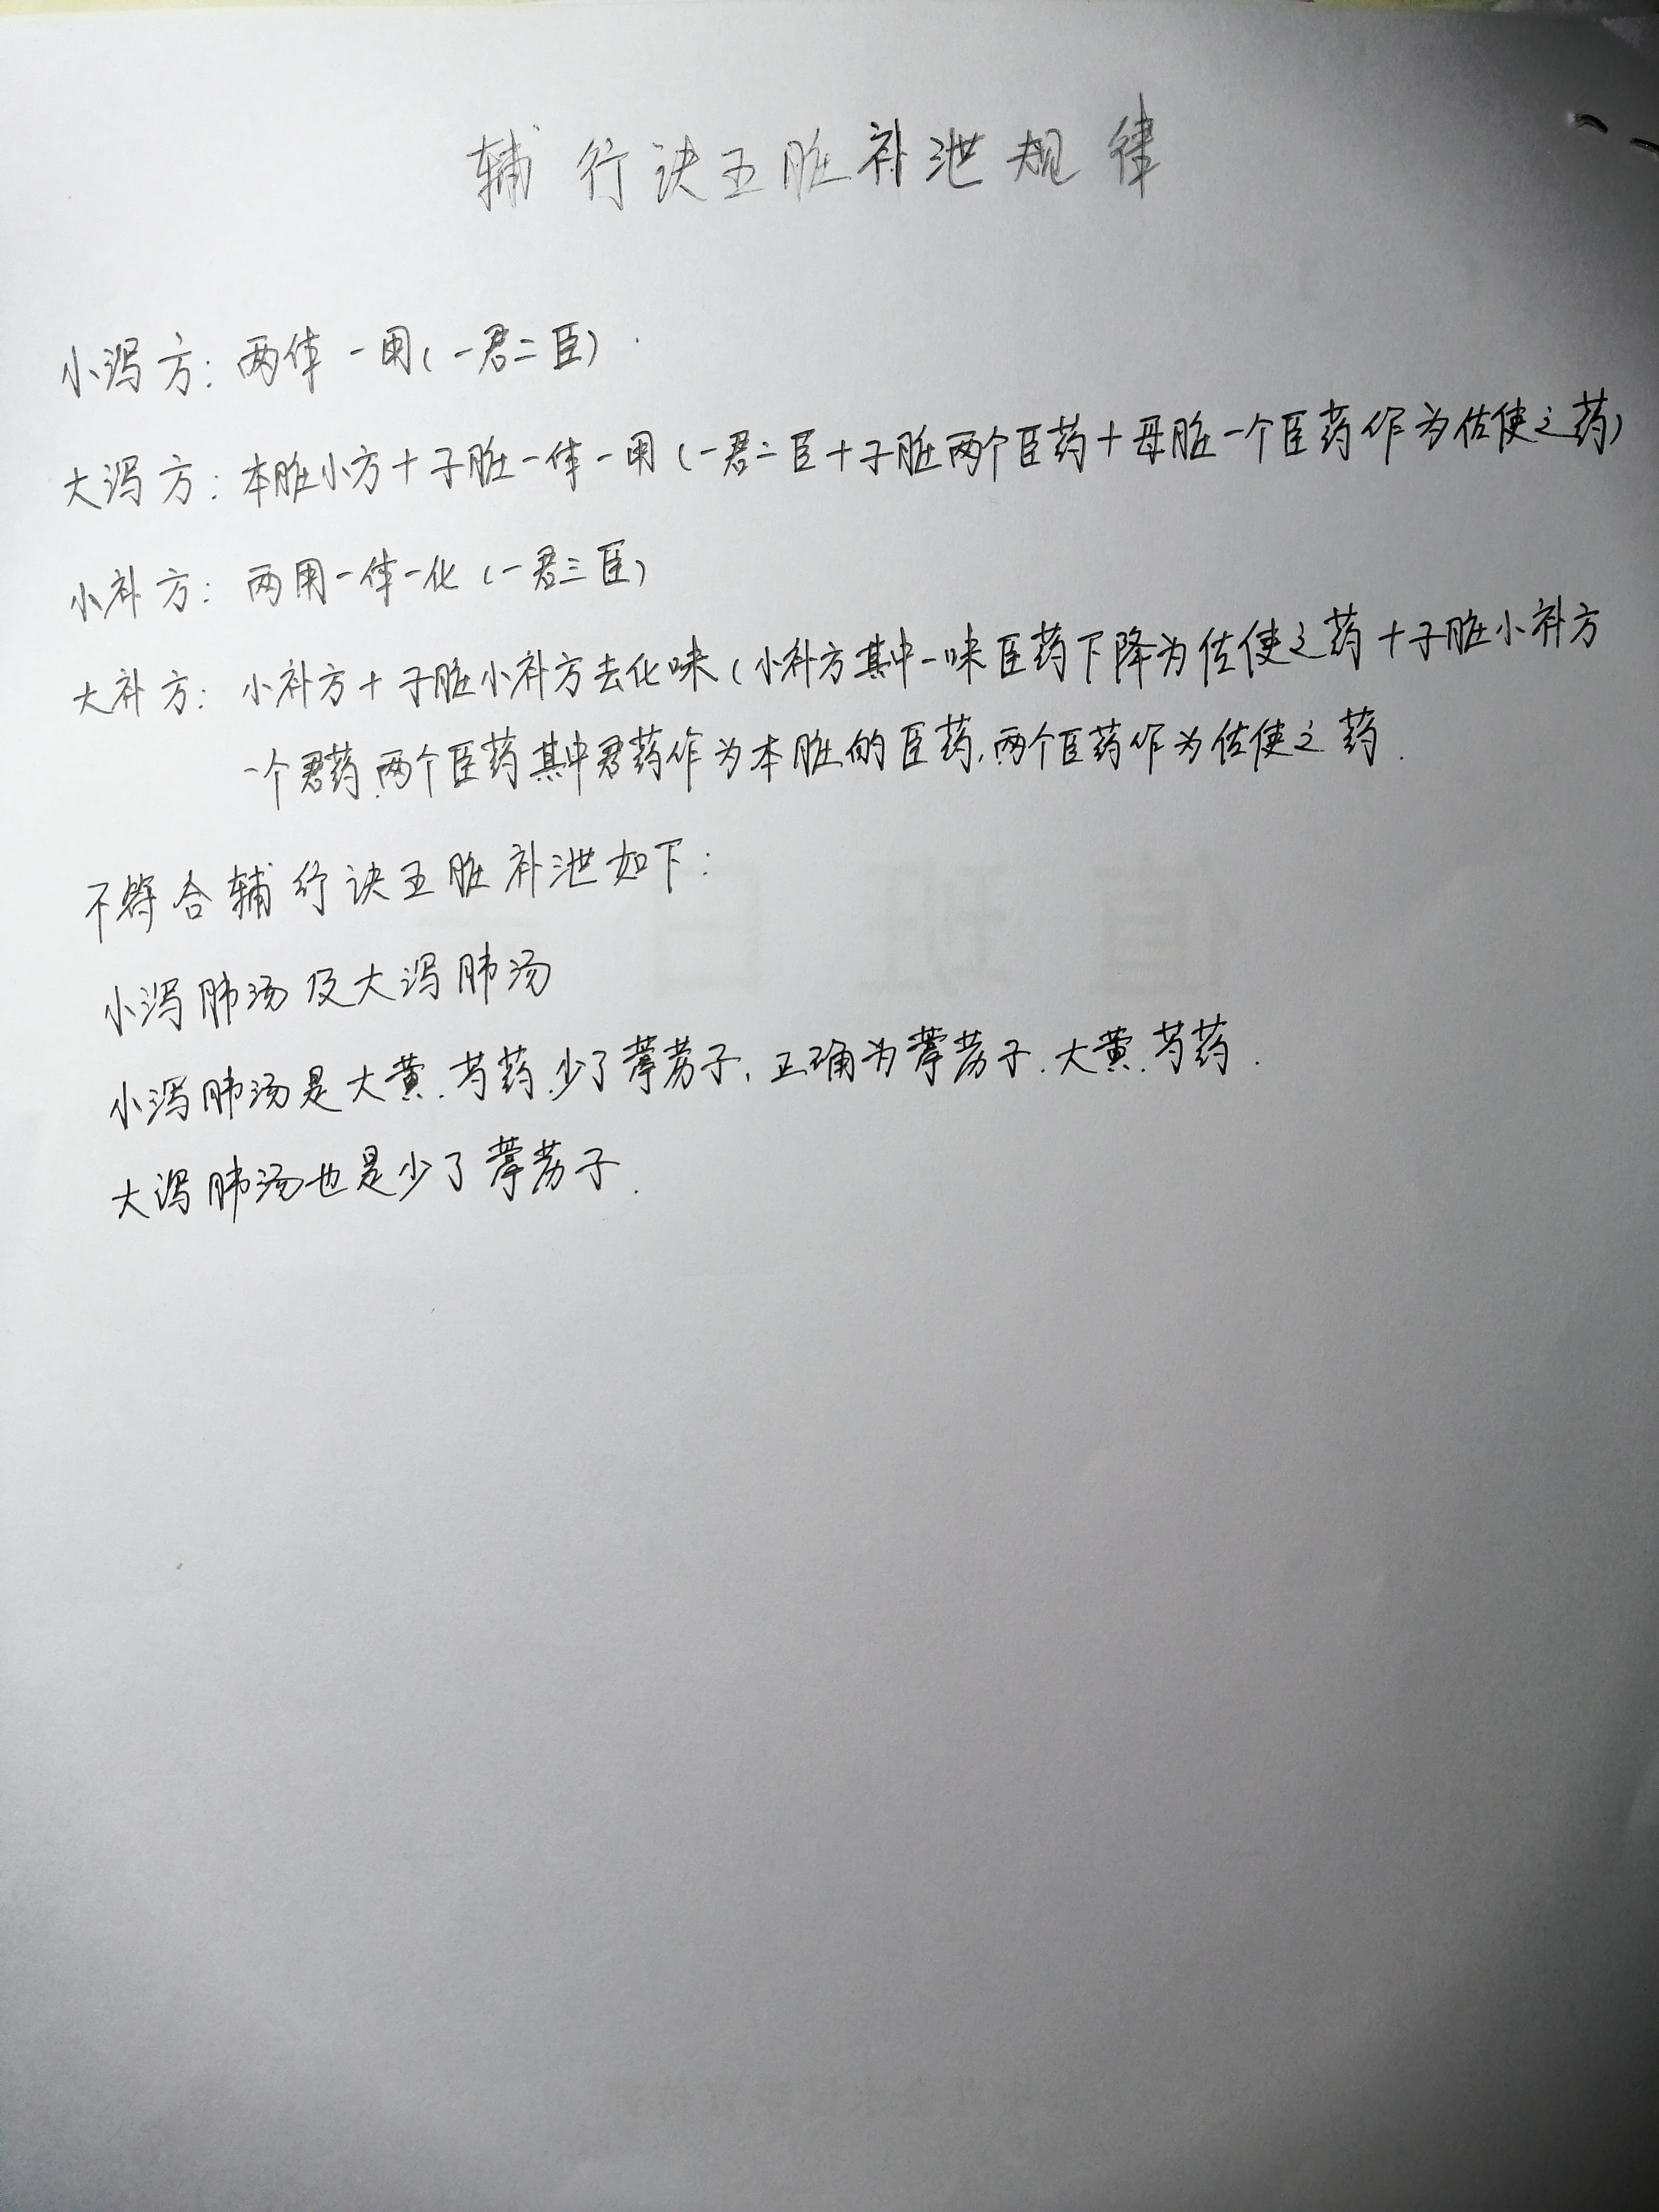 辅行诀五脏补泄规律
小泻方：两体一用（一君二臣）.
大泻方：本脏小方＋子脏一体一用（一君二臣＋子脏两个臣药＋母脏一个臣药作为佐使之药）
小补方：两用一体一化（一君三臣）
大补方：小补方＋子脏小补方去化味（小补方其中一味臣药下降为佐使之药＋子脏小补方
一个君药.两个臣药其中君药作为本脏的臣药,两个臣药作为佐使之药.
不符合辅行诀五脏补泄如下：
小泻肺汤及大泻肺汤
小泻肺汤是大黄.芍药.少了葶苈子,正确为葶苈子.大黄.芍药.
大泻肺汤也是少了葶苈子.
值班日